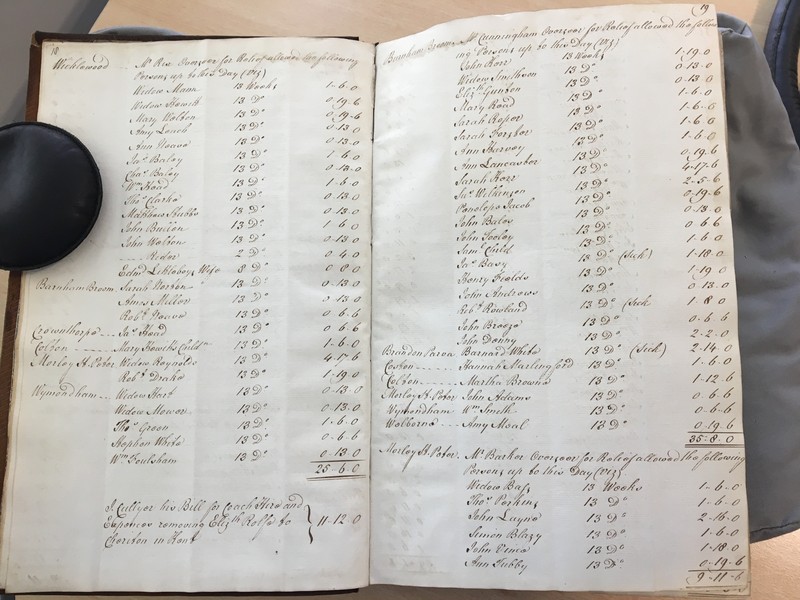 18
Wicklewood Mr Rix Overseer for Relief allowed the following
Persons up to this Day (Viz)
Widow Mann 13 Weeks 1-6-0
Widow Howell 13 Do 0-19-6
Mary Walton 13 Do 0-19-6
Amy Leach 13 Do 0-13-0
Ann 13 Do 0-13-0
Jas Baley 13 Do 1-6-0
Chas Baley 13 Do 0-13-0
Wm Head 13 Do 1-6-0
Thos Clarke 13 Do 0-13-0
Matthew Stubbs 13 Do 0-13-0
John Bunon 13 Do 1-6-0
John Walton 13 Do 0-13-0
Reder 2 Do 0-4-0
Edmd Wife 8 Do 0-8-0
Barnham Broom Sarah Norton 13 Do 0-13-0
Amos Nelson 13 Do 0-13-0
Robt 13 Do 0-6-6
Crownthorpe Jas Head 13 Do 0-6-6
Colton Mary Howitts Child 13 Do 1-6-0
Morley St Peter Widow Reynolds 13 Do 4-7-6
Robt Drake 13 Do 1-19-0
Wymondham Widow Hart 13 Do 0-13-0
Widow Mower 13 Do 0-13-0
Thos Green 13 Do 1-6-0
Stephen White 13 Do 0-6-6
Wm Foulsham 13 Do 0-13-0
25-6-0
J. Cullyer his Bill for Coach Hire and
Expences removing Elizth Rolfe to
Cheriton in Kent 11-12-0
19
Barnham Broom Mr Cunningham Overseer for Relief allowed the follow
ing Persons up to this Day (Viz)
John Herr 13 Weeks 1-19-0
Widow Smithson 13 Do 0-13-0
Elizth Gunton 13 Do 0-13-0
Mary Read 13 Do 1-6-0
Sarah Roper 13 Do 1-6-6
Sarah Forster 13 Do 1-6-6
Ann Harvey 13 Do 1-6-0
Ann Lancaster 13 Do 0-19-6
Sarah Herr 13 Do 4-17-6
Jas Wilkinson 13 Do 2-5-6
Penelope Jacob 13 Do 0-19-6
John Bales 13 Do 0-13-0
John Tooley 13 Do 0-6-6
Saml Child 13 Do 1-6-0
Jas Basy 13 Do (Sick) 1-18-0
Henry Fields 13 Do 1-19-0
John Andrews 13 Do 0-13-0
Robt Rowland 13 Do (Sick 1-8-0
John Breeze 13 Do 0-6-6
John Denny 13 Do 2-2-0
Brandon Parva Barnard White 13 Do (Sick) 2-14-0
Coston Hannah Starlingford 13 Do 1-6-0
Colton Martha Browne 13 Do 1-12-6
Morley St Peter John Adams 13 Do 0-6-6
Wymondham Wm Smith 13 Do 0-6-6
Welborne Amy Meal 13 Do 0-19-6
35-8-0
Morley St Peter Mr Barker Overseer for Relief allowed the following
Persons up to this Day (Viz)
Widow Bass 13 Weeks 1-6-0
Thos Perkins 13 Do 1-6-0
John Layne 13 Do 2-16-0
Simon Blazy 13 Do 1-6-0
John Vince 13 Do 1-18-0
Ann Tubby 13 Do 0-19-6
9-11-6